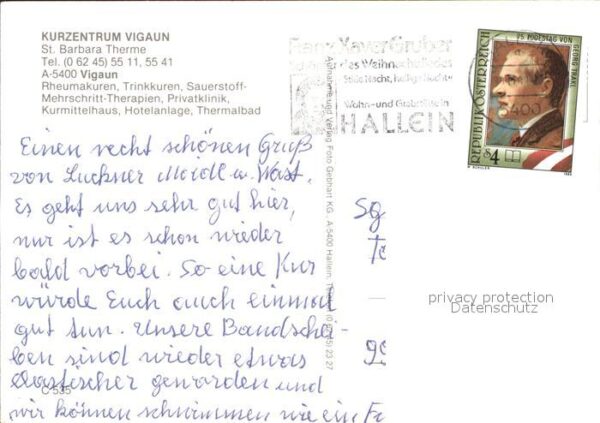 KURZENTRUM VIGAUN
St. Barbara Therme
Tel. (0 62 45) 55 11, 55 41
A-5400 Vigaun
Rheumakuren, Trinkkuren, Sauerstoff-
Mehrschritt-Therapien, Privatklinik,
Kurmittelhaus, Hotelanlage, Thermalbad
Franz Xaver Gruber
des Weihnachtsliedes
Stille Nacht, heilige Nacht
Wohn- und Grabstätte in
HALLEIN
5400
75. TODESTAG VON
GEORG TRAKL
REPUBLIK ÖSTERREICH
S 4
1989
Aufnahme und Verlag Foto Gebhart KG, A-5400 Hallein, 23 27
Einen recht schönen Gruß
von Luckner u.
Es geht uns sehr gut hier,
nur ist es schon wieder
bald vorbei. So eine Kur
würde Euch auch einmal
gut tun. Unsere Bandschei-
ben sind wieder etwas
elastischer geworden und
wir können schwimmen wie ein
C 535
privacy protection
Datenschutz